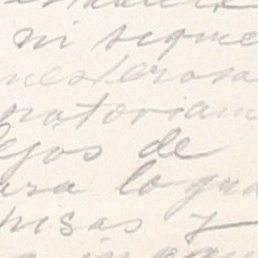 ni sique
nesterosa
ratoriam
lejos de
ara logra
pisas y